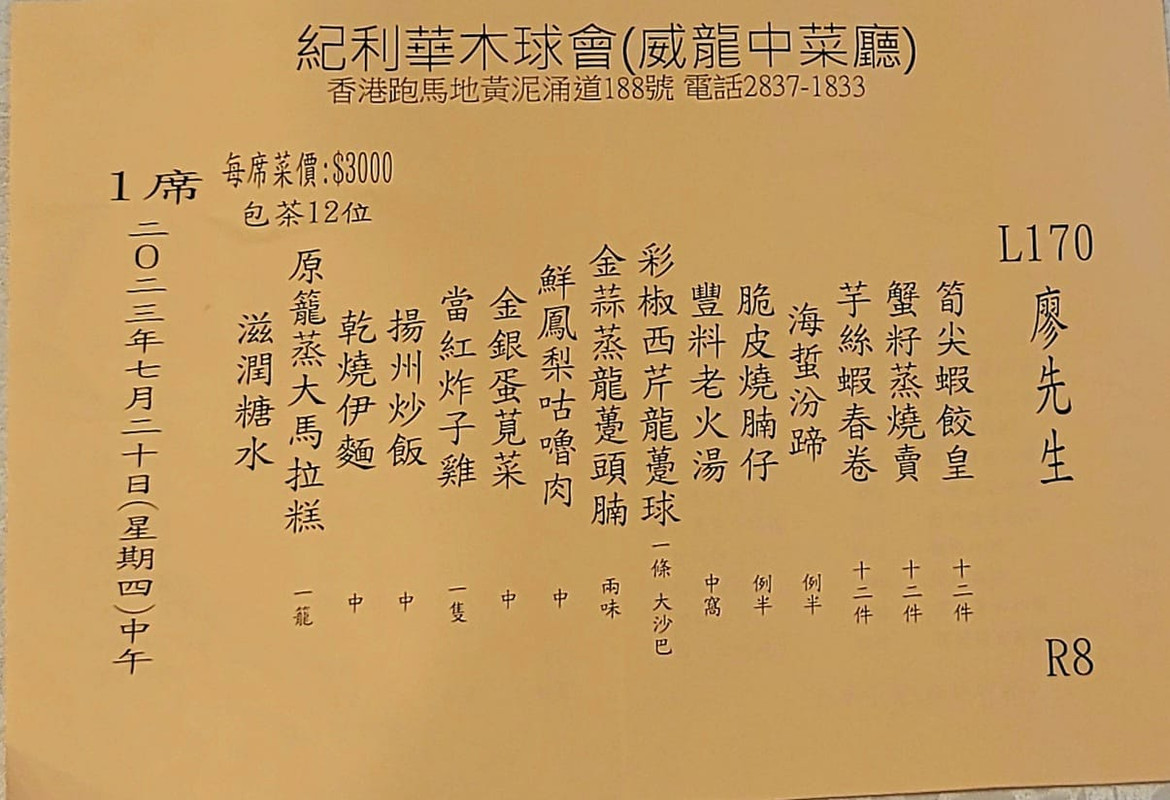 紀利華木球會(威龍中菜廳)
香港跑馬地黃泥涌道188號 電話2837-1833
L170
廖先生
R8
筍尖蝦餃皇 十二件
蟹籽蒸燒賣 十二件
芋絲蝦春卷 十二件
海蜇汾蹄 例半
脆皮燒腩仔 例半
豐料老火湯 中窩
彩椒西芹龍躉球 一條 大沙巴
金蒜蒸龍躉頭腩 兩味
鮮鳳梨咕嚕肉 中
金銀蛋莧菜 中
當紅炸子雞 一隻
揚州炒飯 中
乾燒伊麵 中
原籠蒸大馬拉糕 一籠
滋潤糖水
每席菜價:$3000
包茶12位
1席
二0二三年七月二十日(星期四)中午